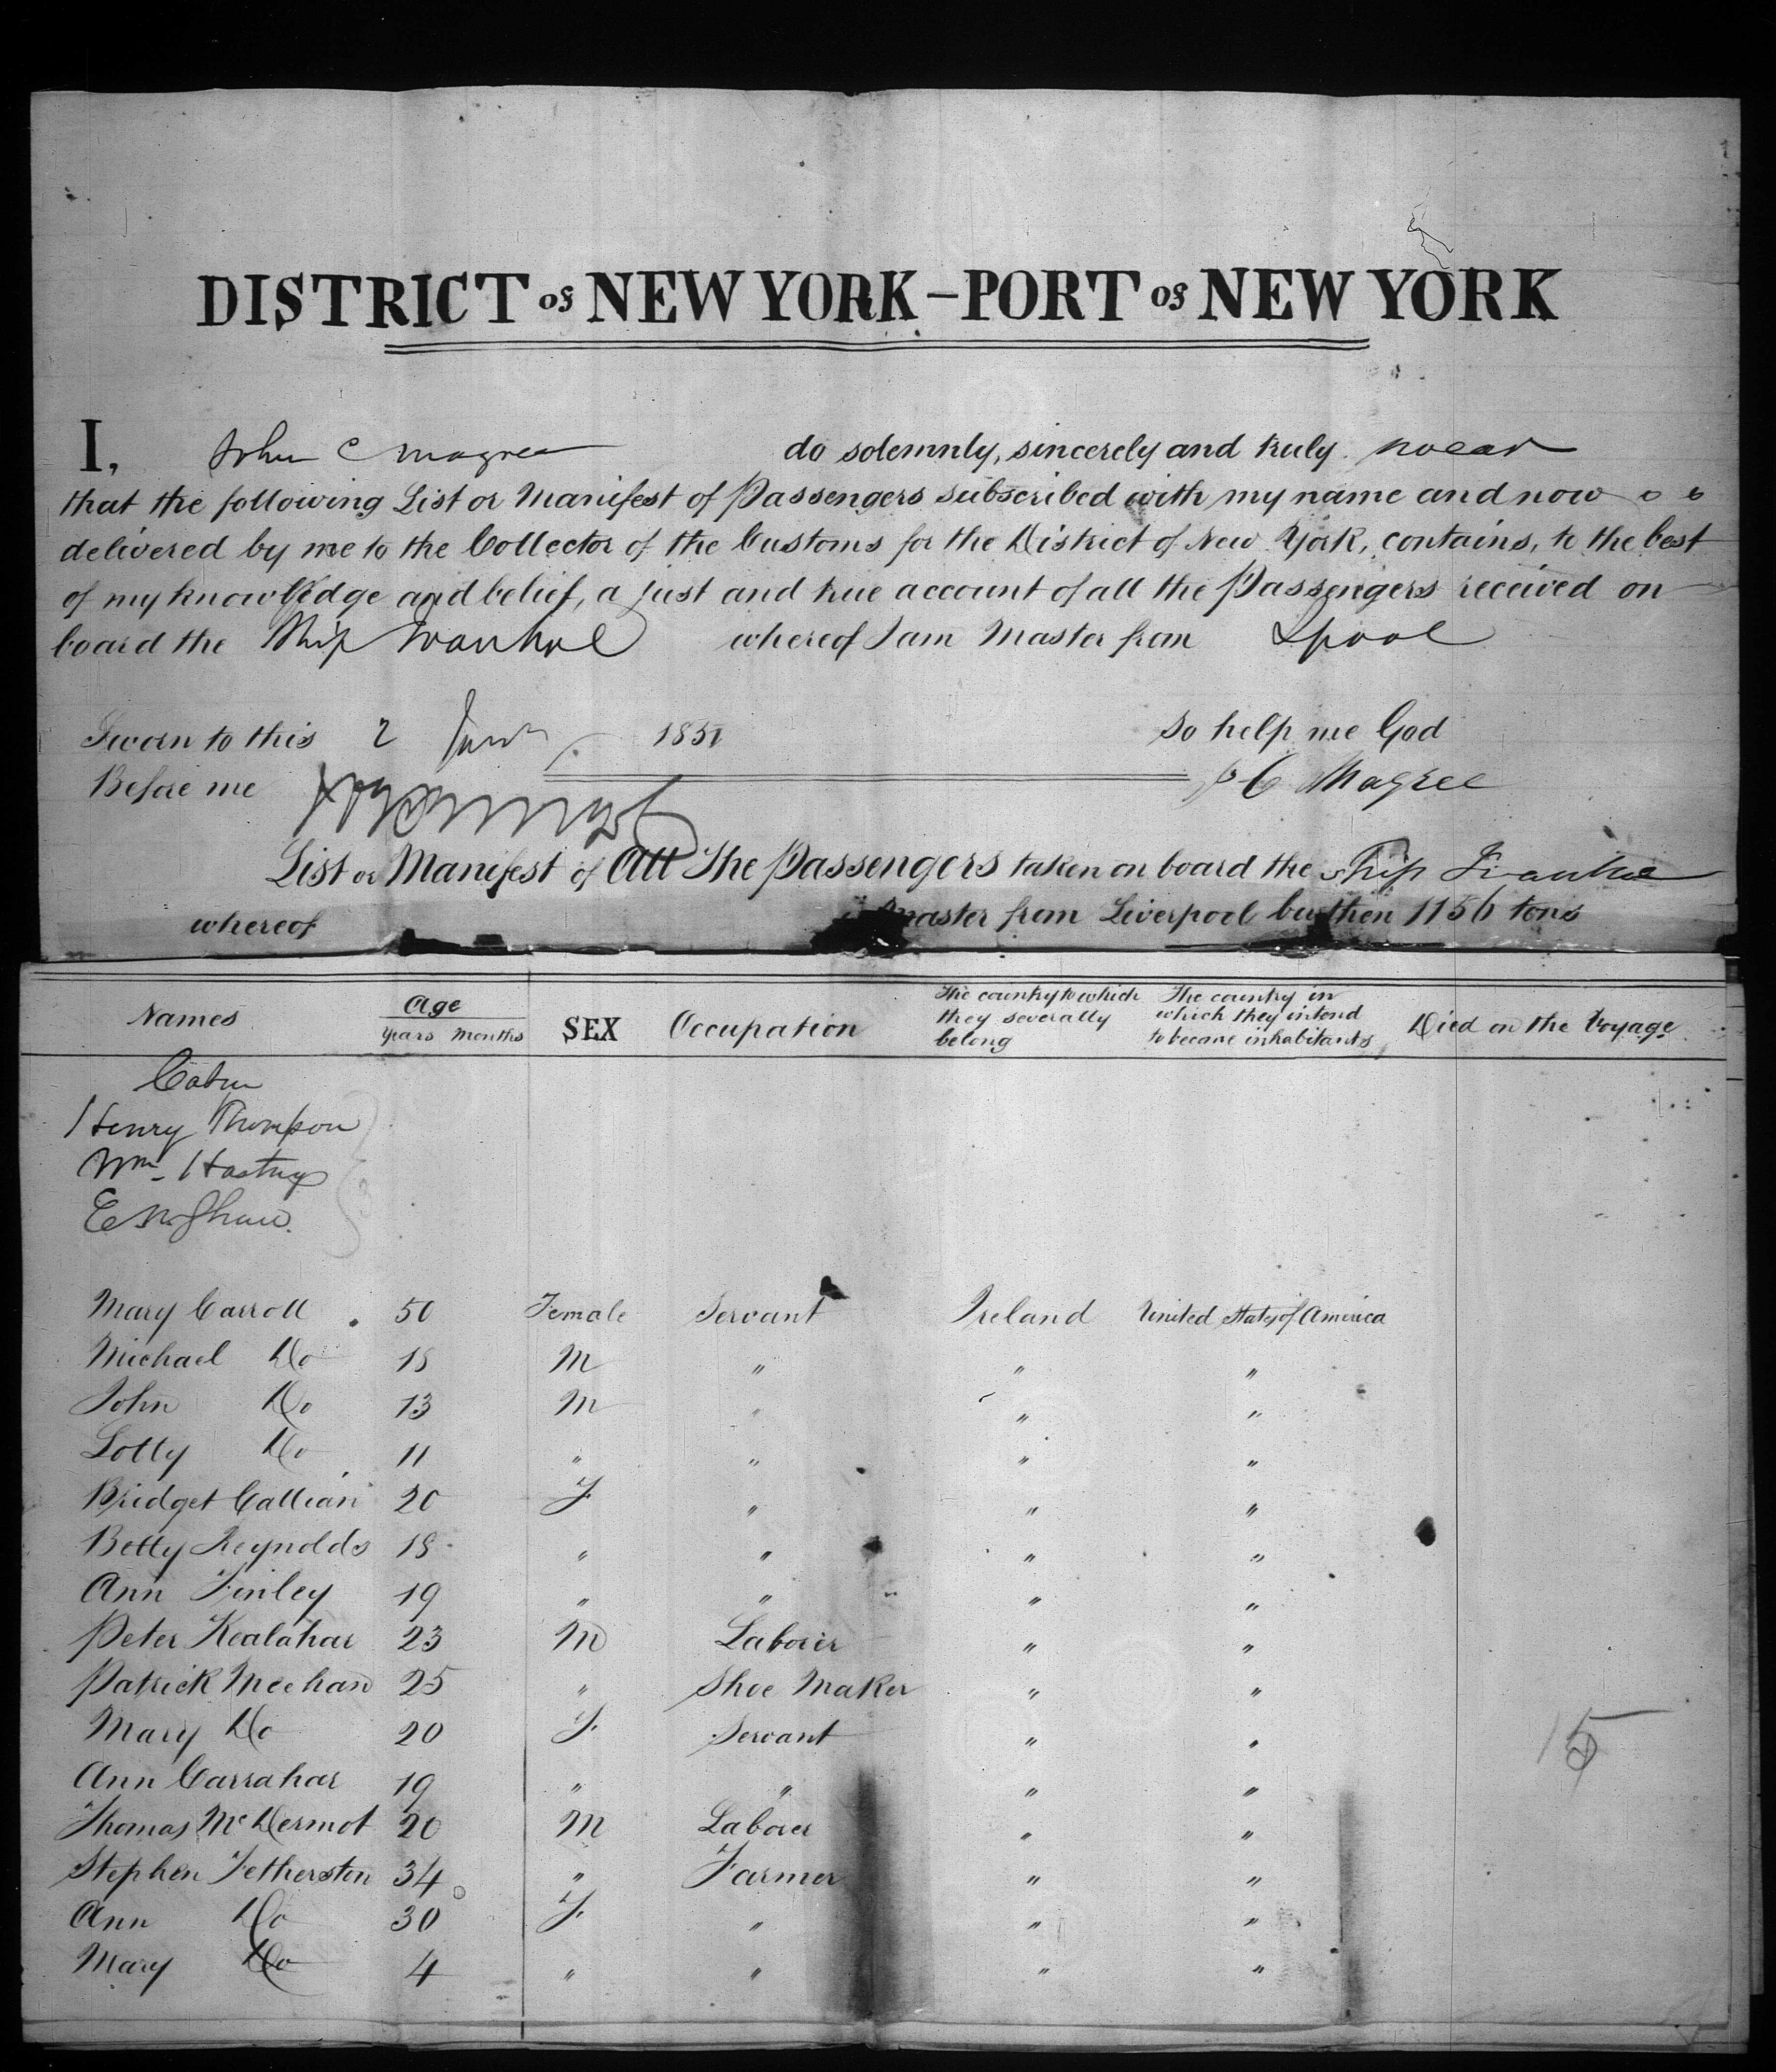 DISTRICT of NEW YORK - PORT of NEW YORK
I, John C Magree do solemnly, sincerely and truly swear
that the following List or Manifest of Passengers subscribed with my name and now
delivered by me to the Collector of the Customs for the District of New York, contains, to the best
of my knowledge and belief, a just and true account of all the Passengers received on
board the Ship Ivanhoe whereof I am Master from Lpool
Sworn to this 2 1851 So help me God
Before me J C Magree
List or Manifest of All The Passengers taken on board the Ship Ivanhoe
whereof is Master from Liverpool burthen 1156 tons
Names Age Years Months SEX Occupation The country to which they severally belong The country in which they intend to become inhabitants Died on the Voyage
Cabin
Henry Thompson
Wm. Hastings
E Shaw
Mary Carroll 50 Female Servant Ireland United States of America
Michael Do 18 M " " "
John Do 13 M " " "
Lotty Do 11 " " " "
Bridget Callian 20 F " " "
Betty Reynolds 18 " " " "
Ann Finley 19 " " " "
Peter Kealahar 23 M Laborer " "
Patrick Meehan 25 " Shoe Maker " "
Mary Do 20 F Servant " "
Ann Carrahar 19 " " " "
Thomas McDermot 20 M Laborer " "
Stephen Fetherston 34 " Farmer " "
Ann Do 30 F " " "
Mary Do 4 " " " "
15